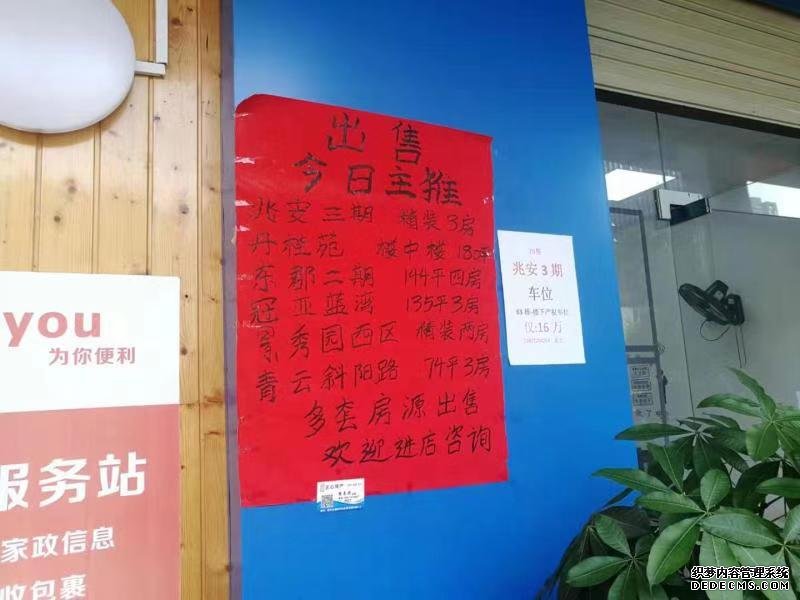 出售
今日主推
兆安三期 精装3房
丹桂苑 楼中楼 180坪
东郡二期 144平四房
冠亚蓝湾 135平3房
景秀园西区 精装两房
青云斜阳路 74平3房
多套房源出售
欢迎进店咨询
兆安3期
车位
仅:16万
you
为你便利
服务站
家政信息
收包裹
织梦内容管理系统
DEDECMS.COM